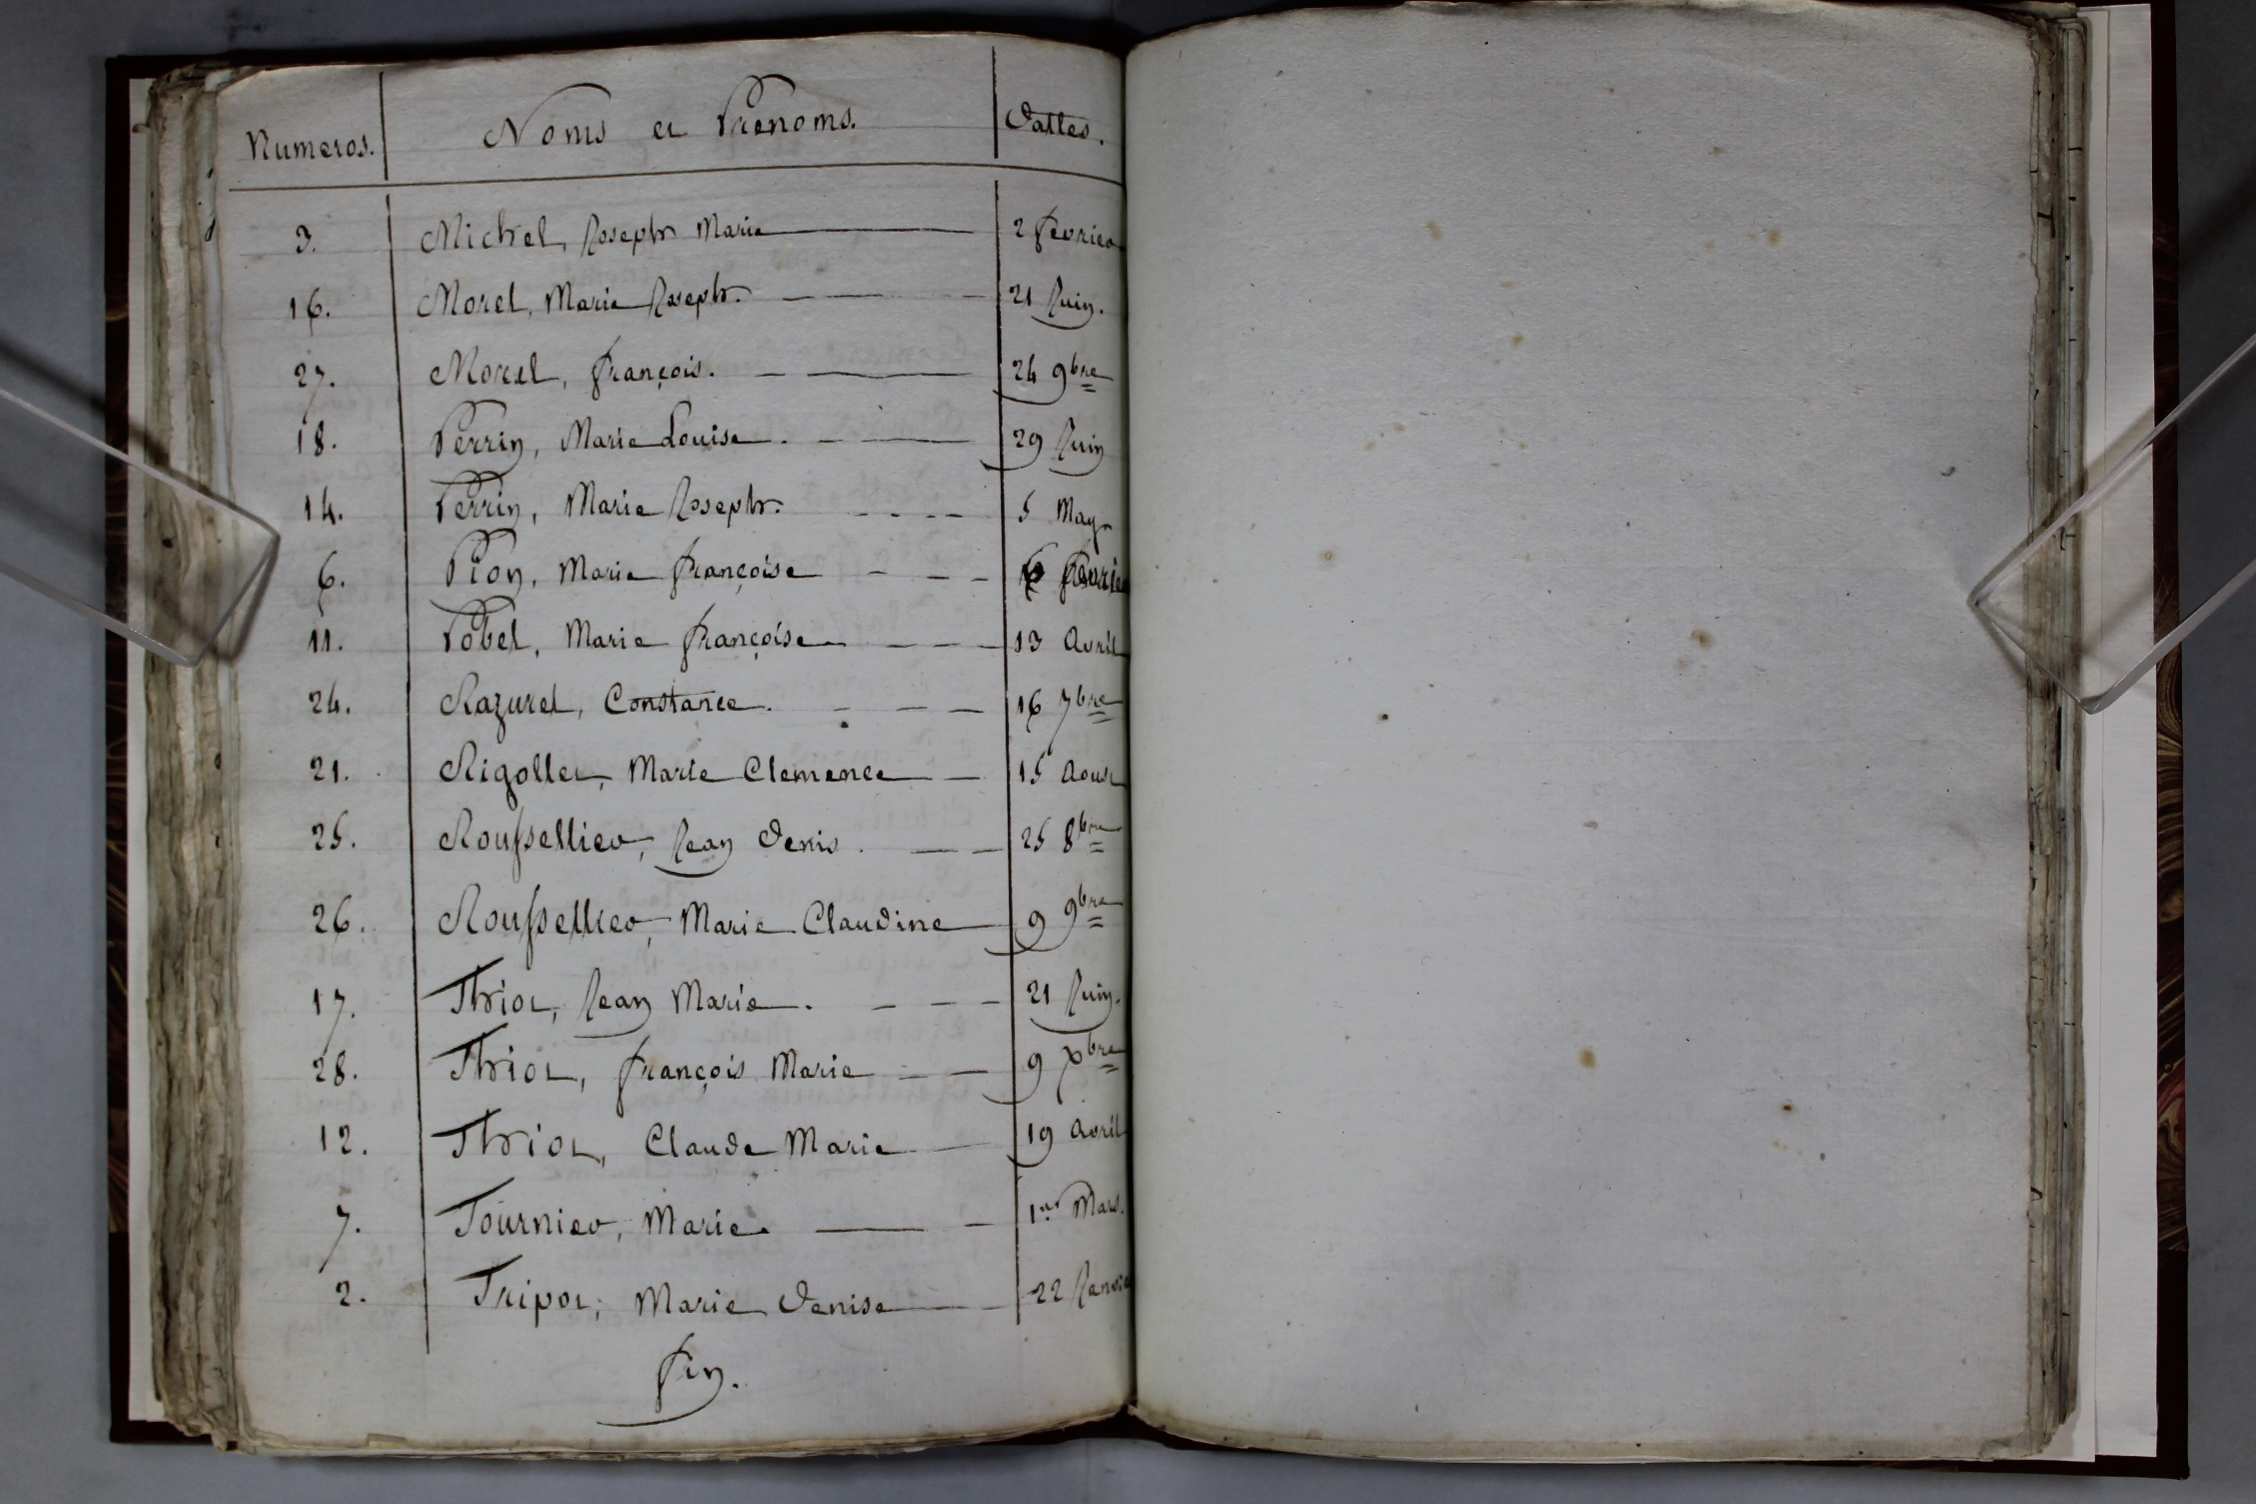 Numeros. Noms et Prenoms. Dattes.
3. Michel, Joseph Marie 2 fevrier
16. Morel, Marie Joseph. 21 Juin.
27. Morel, françois. 24 9bre
18. Perrin, Marie Louise. 29 Juin
14. Perrin, Marie Joseph. 5 May
6. Pion, Marie françoise fevrier
11. Pobel, Marie françoise 13 avril
24. Razurel, Constance. 16 7bre
21. Rigollet, Marie Clemence 15 aoust
25. Roussellier, Jean Denis. 25 8bre
26. Roussellier, Marie Claudine 9 9bre
17. Thiot, Jean Marie. 21 Juin.
28. Thiot, françois Marie 9 Xbre
12. Thiot, Claude Marie 19 avril
7. Tournier, Marie. 1er Mars.
2. Tripot, Marie Denise 22 Janvie
fin.